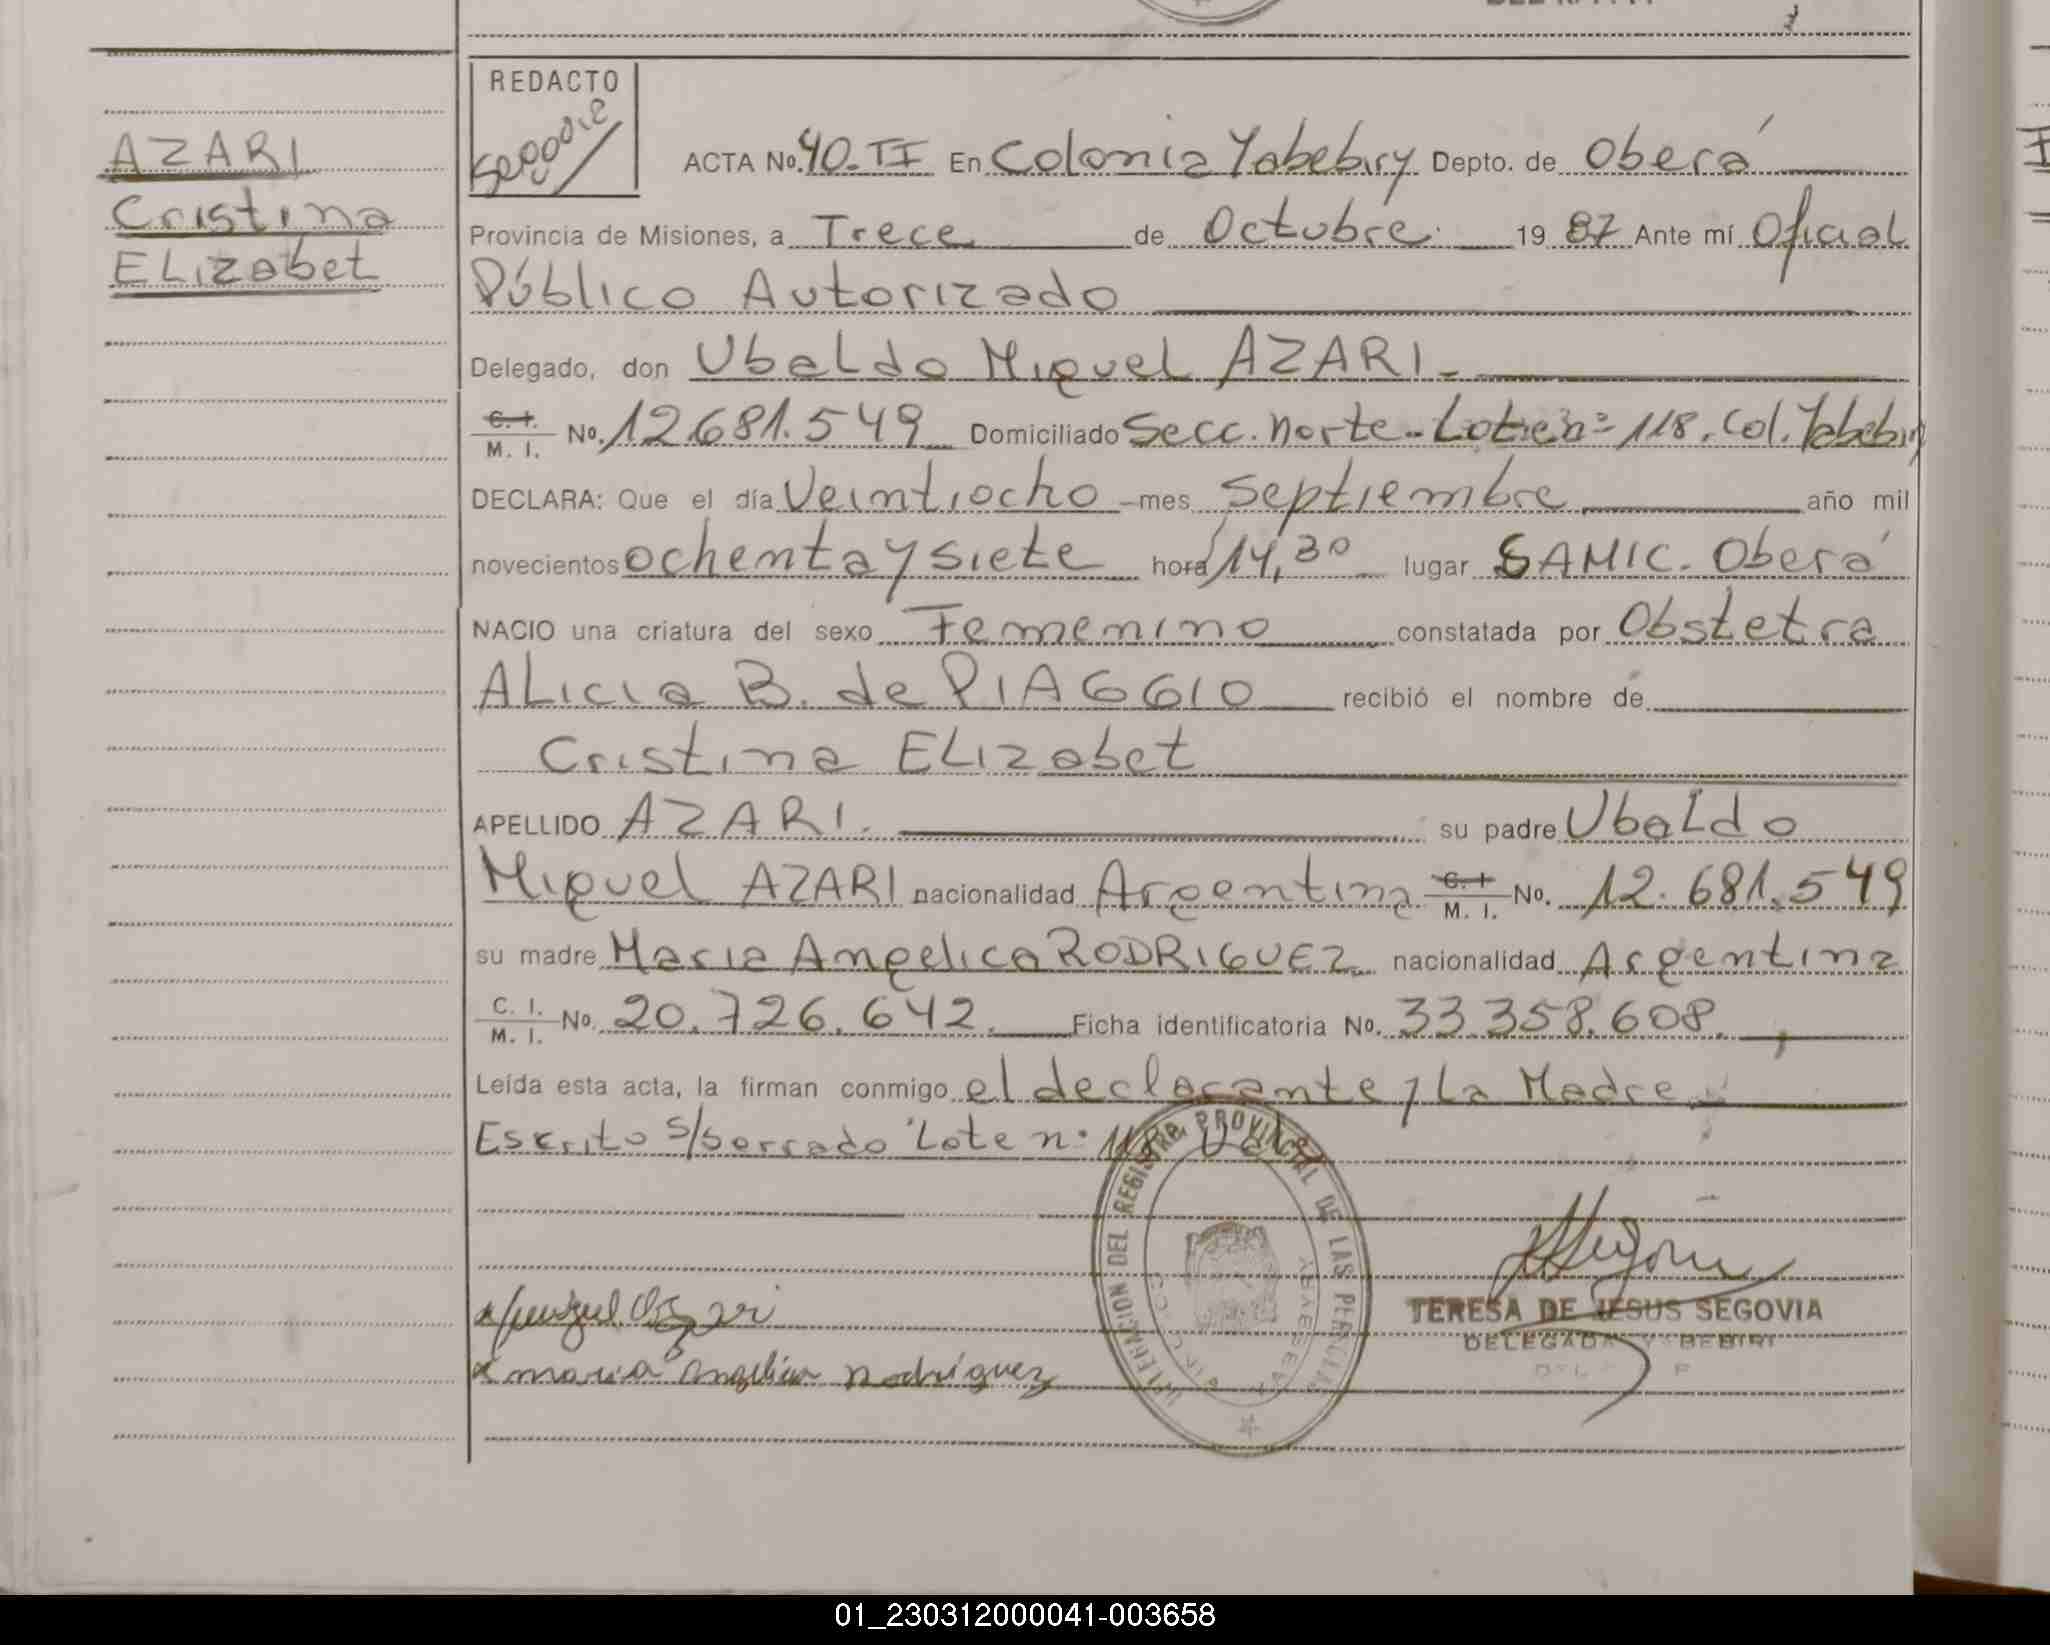 AZARI
Cristina
ELizabet
REDACTO
Segovia
ACTA No. 40.TI En Colonia Yabebiry Depto. de Oberá
Provincia de Misiones, a Trece de Octubre 1987 Ante mí Oficial
Público Autorizado
Delegado, don Ubaldo Miguel AZARI.
C. I. / M. I. No. 12.681.549 Domiciliado Secc. Norte - Lote nº 118. Col. Yabebiry
DECLARA: Que el día Veintiocho mes Septiembre año mil
novecientos ochenta y siete hora 14,30 lugar SAMIC. Oberá
NACIO una criatura del sexo Femenino constatada por Obstetra
ALicia B. de PIAGGIO recibió el nombre de
Cristina ELizabet
APELLIDO AZARI. su padre Ubaldo
Miguel AZARI nacionalidad Argentina C. I. / M. I. No. 12.681.549
su madre Maria Angelica RODRIGUEZ nacionalidad Argentina
C. I. / M. I. No. 20.726.642. Ficha identificatoria No. 33.358.608.
Leída esta acta, la firman conmigo el declarante y La Madre
Escrito s/borrado "Lote n° 118" Vale
DEL REGISTRO PROVINCIAL DE LAS PERSONAS
Miguel Azari
maria Angelica Rodriguez
TERESA DE JESUS SEGOVIA
DELEGADA YABEBIRI
01_230312000041-003658